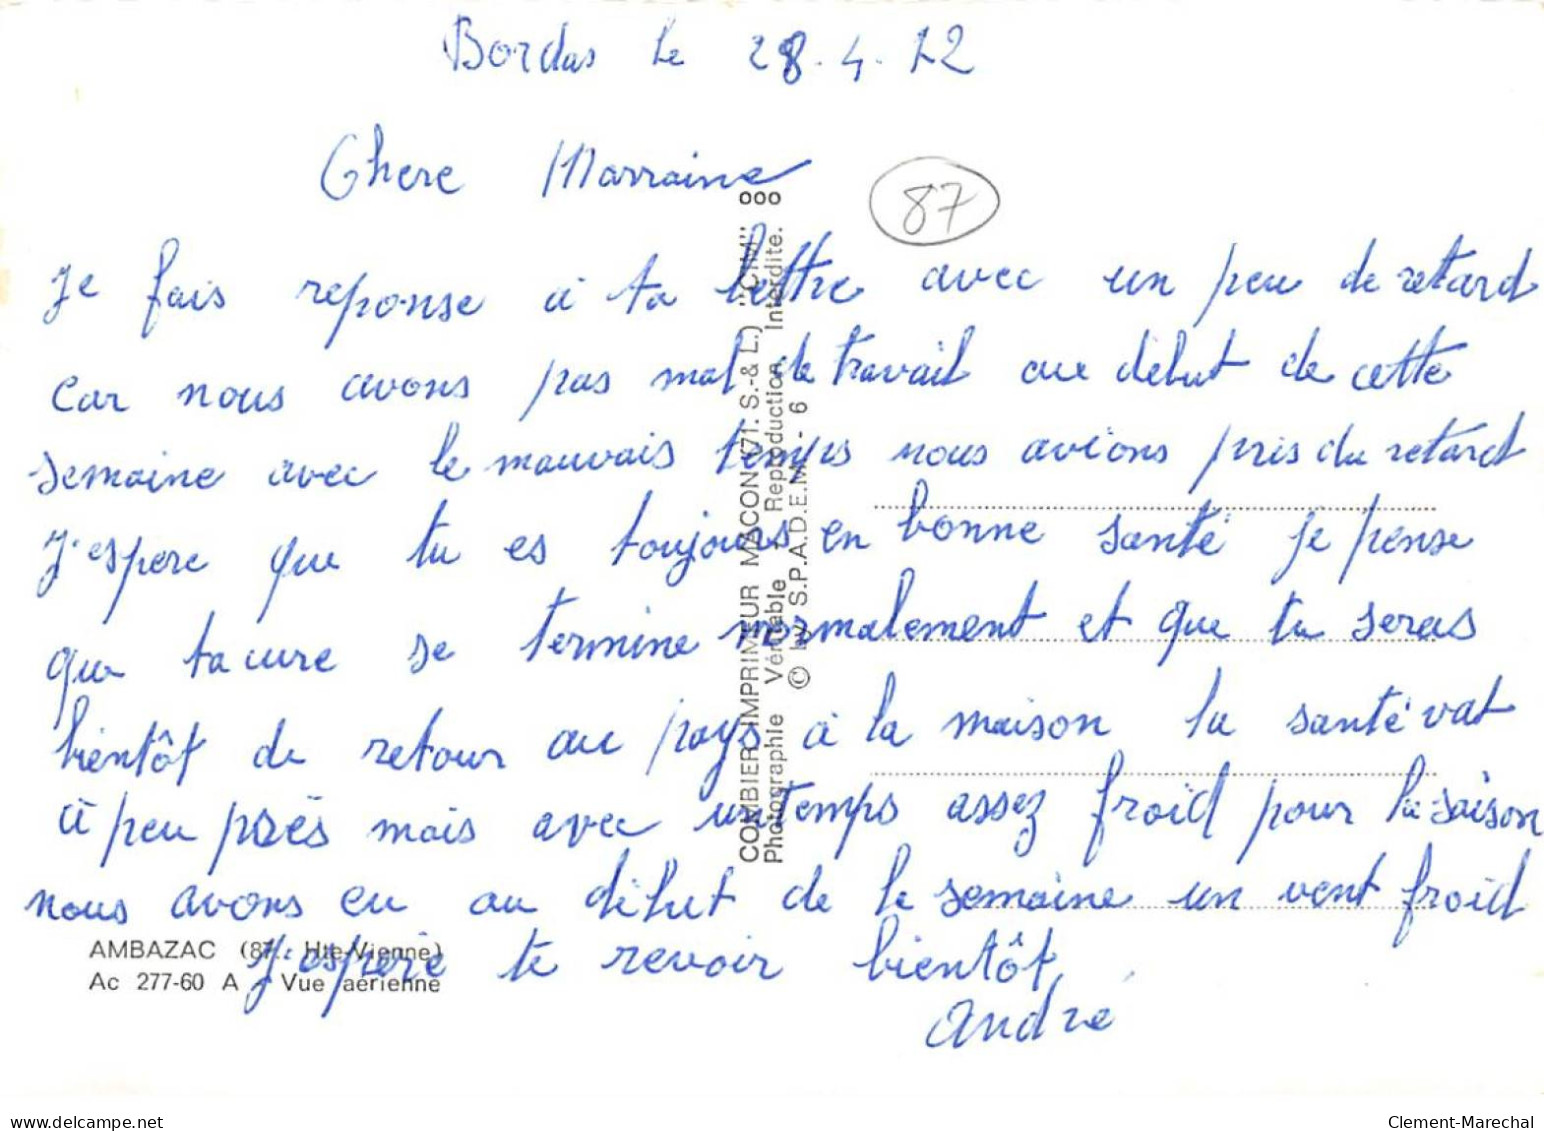 Bordas le 28.4.72
Chere Marraine
87
Je fais reponse à ta lettre avec un peu de retard
car nous avons pas mal de travail au début de cette
semaine avec le mauvais temps nous avions pris du retard
J'espere que tu es toujours en bonne santé je pense
que ta cure se termine normalement et que tu seras
bientôt de retour au pays à la maison la santé vat
à peu près mais avec un temps assez froid pour la saison
nous avons eu au début de la semaine un vent froid
J'espere te revoir bientôt
André
AMBAZAC (87. Hte-Vienne)
Ac 277-60 A - Vue aérienne
COMBIER IMPRIMEUR MACON (71. S.-& L.) "CIM" ooo
Photographie Véritable - Reproduction Interdite.
© by S.P.A.D.E.M. - 6
www.delcampe.net
Clement-Marechal